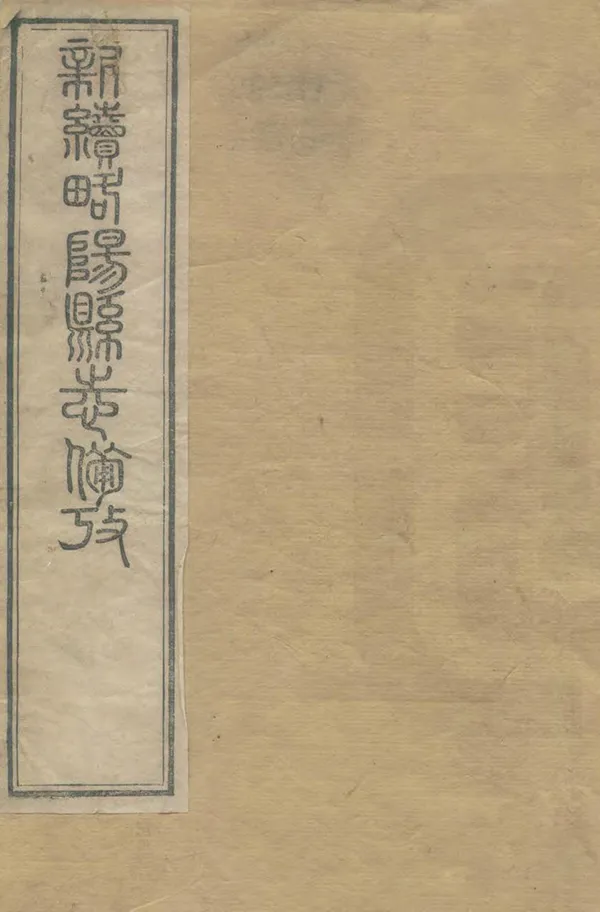 新續略陽縣志備攷